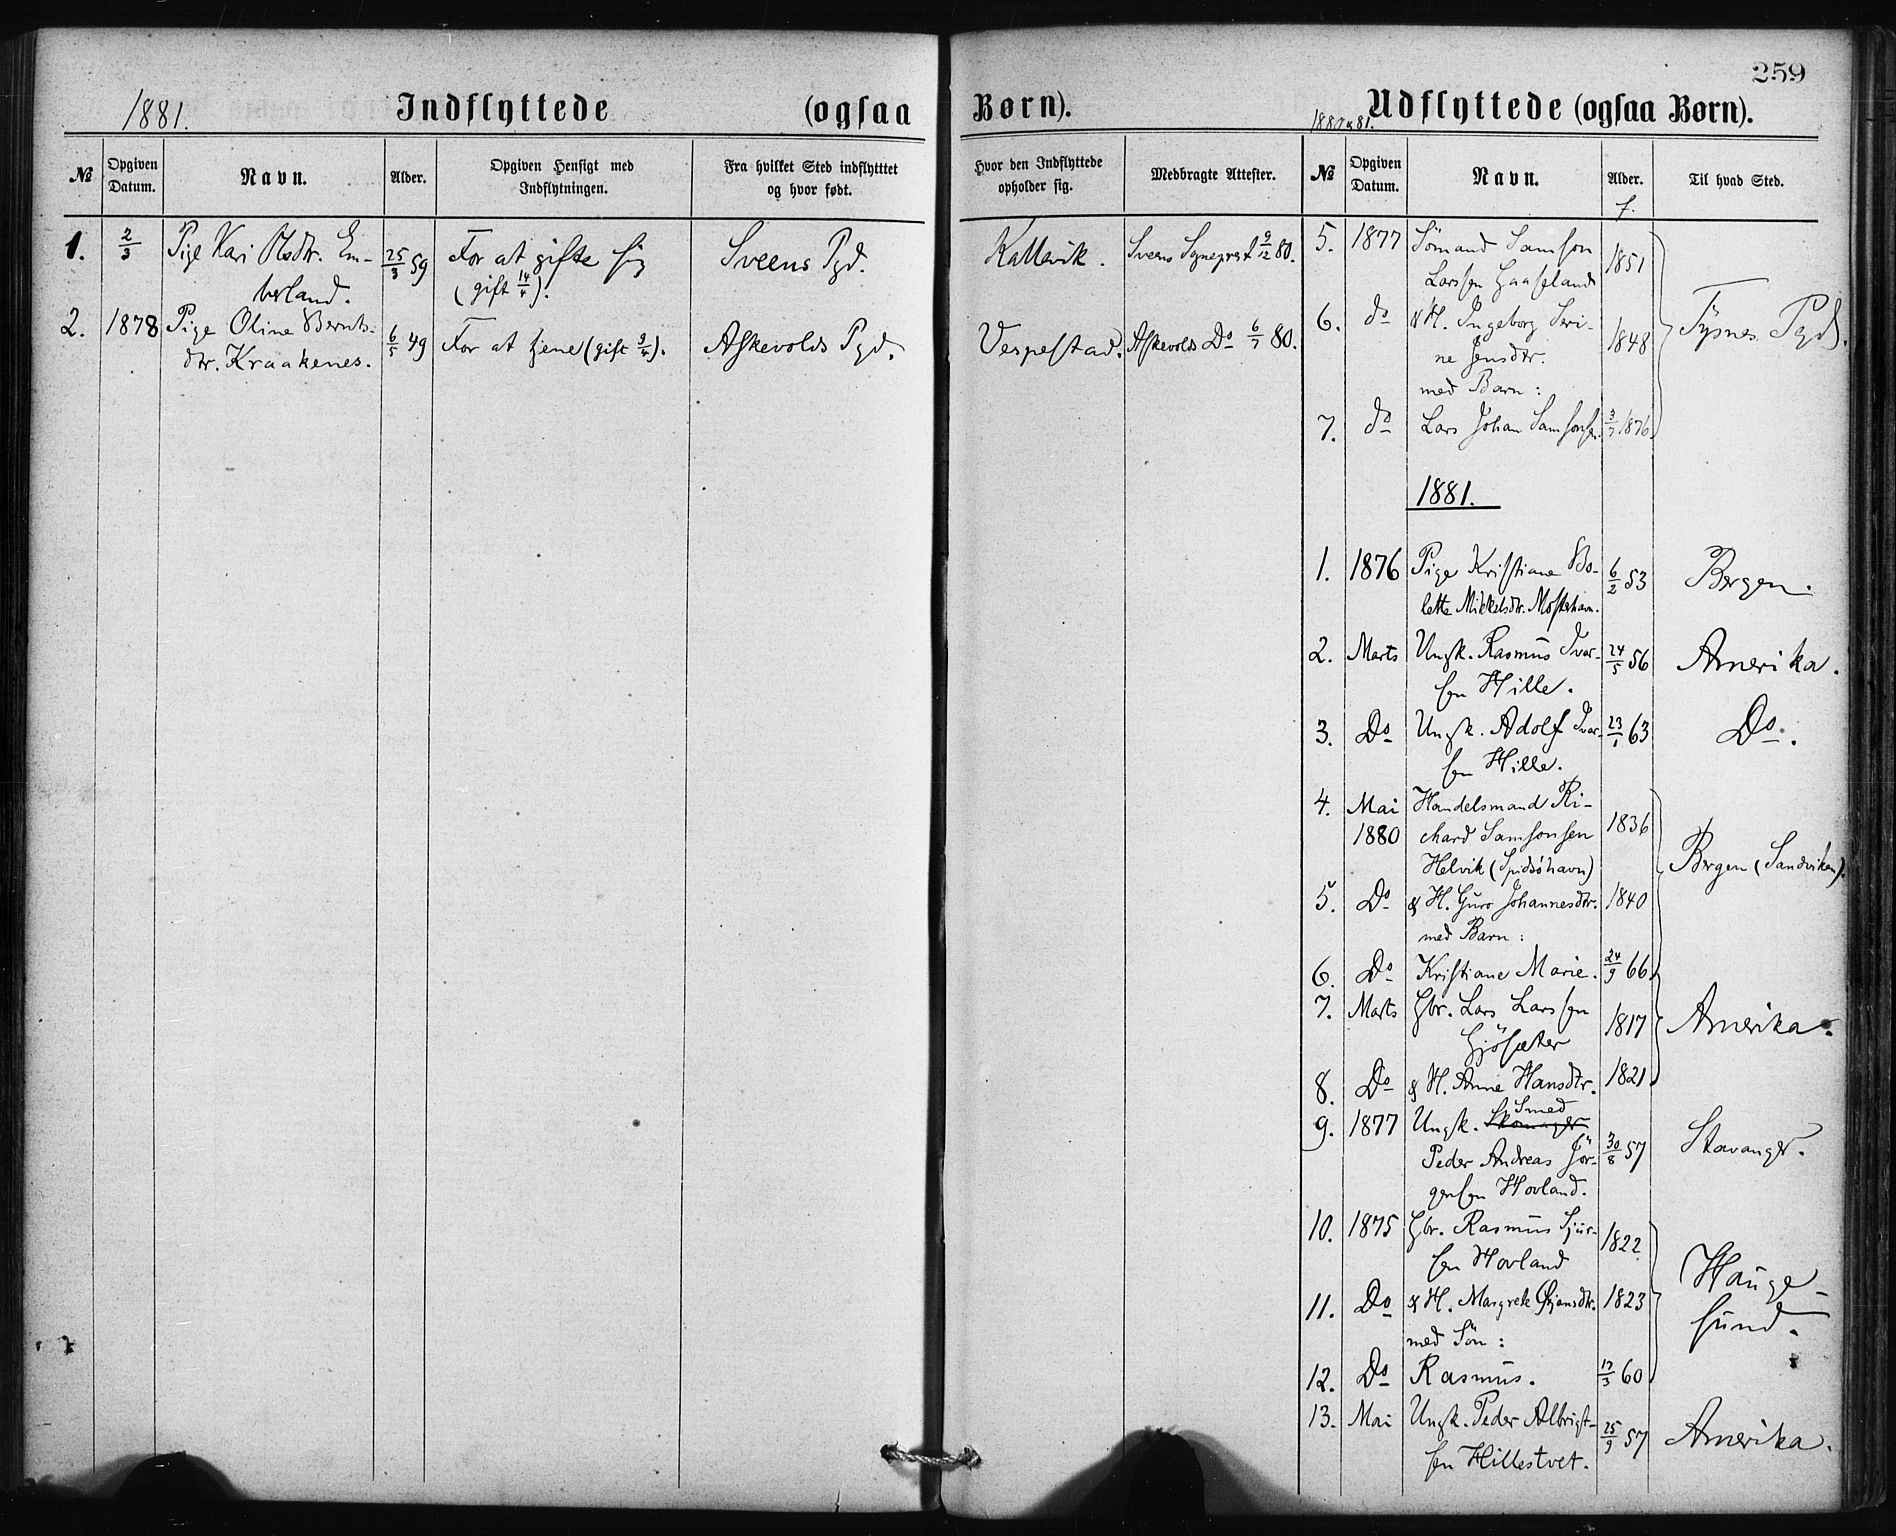 259
1881. Indflyttede (ogsaa Børn).
№
Opgiven Datum.
Navn.
Alder.
Opgiven Hensigt med Indflytningen.
Fra hvilket Sted indflytttet og hvor født.
Hvor den Indflyttede opholder sig.
Medbragte Attester.
1. 2/3 Pige Kari Olsdtr. Em- 25/3 59 For at gifte sig Sveens Pgd. Kallevik. Sveens Sogneprest 9/12 80.
berland. (gift 14/4).
2. 1878 Pige Oline Bernts- 6/5 49 For at tjene (gift 3/4). Askevolds Pgd. Vespestad. Askevolds Do 6/7 80.
dtr. Kraakenes.
1880 & 81. Udflyttede (ogsaa Børn).
№
Opgiven Datum.
Navn.
Alder.
Til hvad Sted.
f.
5. 1877 Sömand Samson 1851
Larssen Haaseland
6. do & H. Ingeborg Seri- 1848 Tysnes Pgd.
ne Jensdtr.
med Barn:
7. do Lars Johan Samsonsen 3/7 1876
1881.
1. 1876 Pige Kristiane Bo- 6/2 53 Bergen.
lette Mikkelsdtr. Mosterhavn.
2. Marts Ungk. Rasmus Ivar- 24/5 56 Amerika.
sen Hille.
3. Do Ungk. Adolf Ivar- 23/1 63 Do.
sen Hille.
4. Mai Handelsmand Ri- 1836
1880 chard Samsonsen
Helvik (Spidsöhavn) Bergen (Sandviken).
5. Do & H. Guro Johannesdtr. 1840
med Barn:
6. Do Kristiane Marie. 24/9 66
7. Marts Gbr. Lars Larssen 1817 Amerika.
Gjösæter
8. Do & H. Anne Hansdtr. 1821
Smed
9. 1877 Ungk. Skomager
Peder Andreas Jör- 30/8 57 Stavanger.
gensen Hovland.
10. 1875 Gbr. Rasmus Sjur- 1822
sen Hovland Hauge-
11. Do & H. Margrete Ørjansdtr. 1823 sund.
med Sön:
12. Do Rasmus. 17/3 60
13. Mai Ungk. Peder Albrigt- 25/9 57 Amerika.
sen Hillestvet.